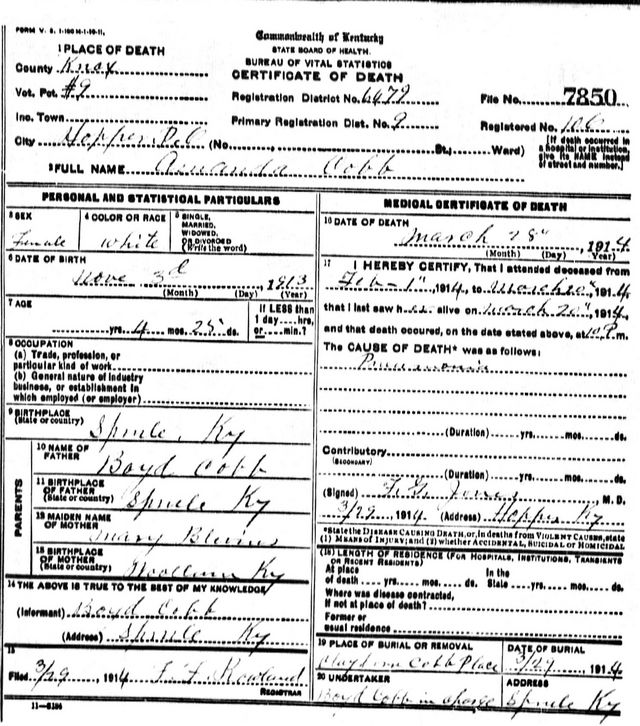 FORM V. S. 1-100 M-1-10-11.
Commonwealth of Kentucky
STATE BOARD OF HEALTH.
BUREAU OF VITAL STATISTICS
CERTIFICATE OF DEATH
1 PLACE OF DEATH
County Knox
Vot. Pct. #9
Inc. Town
City Hopper
Registration District No. 6479
File No. 7850
Primary Registration Dist. No. 9
Registered No.
(No. St., Ward)
[If death occurred in a hospital or institution, give its NAME instead of street and number.]
2 FULL NAME Amanda Cobb
PERSONAL AND STATISTICAL PARTICULARS
3 SEX
Female
4 COLOR OR RACE
White
5 SINGLE, MARRIED, WIDOWED, OR DIVORCED (Write the word)
6 DATE OF BIRTH
Nove 3d, 1913
(Month) (Day) (Year)
7 AGE
yrs. 4 mos. 25 ds.
If LESS than 1 day....hrs. or....min.?
8 OCCUPATION
(a) Trade, profession, or particular kind of work
(b) General nature of industry business, or establishment in which employed (or employer)
9 BIRTHPLACE
(State or country) Sprule, Ky
PARENTS
10 NAME OF FATHER Boyd Cobb
11 BIRTHPLACE OF FATHER (State or country) Sprule Ky
12 MAIDEN NAME OF MOTHER Mary
13 BIRTHPLACE OF MOTHER (State or country) Woollum Ky
14 THE ABOVE IS TRUE TO THE BEST OF MY KNOWLEDGE
(Informant) Boyd Cobb
(Address) Sprule Ky
15
Filed 3/29, 1914 Rowland
REGISTRAR
11-5184
MEDICAL CERTIFICATE OF DEATH
16 DATE OF DEATH
March 28", 1914
(Month) (Day) (Year)
17 I HEREBY CERTIFY, That I attended deceased from
Feb 1", 1914, to March 20", 1914,
that I last saw her alive on March 20", 1914,
and that death occured, on the date stated above, at 10 P. m.
The CAUSE OF DEATH* was as follows:
Pneumonia
(Duration) yrs. mos. ds.
Contributory
(SECONDARY)
(Duration) yrs. mos. ds.
(Signed) Jones, M. D.
3/29, 1914 (Address) Hopper Ky
*State the DISEASE CAUSING DEATH, or, in deaths from VIOLENT CAUSES, state (1) MEANS OF INJURY; and (2) whether ACCIDENTAL, SUICIDAL OR HOMICIDAL
(18) LENGTH OF RESIDENCE (FOR HOSPITALS, INSTITUTIONS, TRANSIENTS OR RECENT RESIDENTS)
At place of death yrs. mos. ds. In the State yrs. mos. ds.
Where was disease contracted, If not at place of death?
Former or usual residence
19 PLACE OF BURIAL OR REMOVAL
Cobb Place
DATE OF BURIAL
3/29, 1914
20 UNDERTAKER
Boyd Cobb in charge
ADDRESS
Sprule Ky